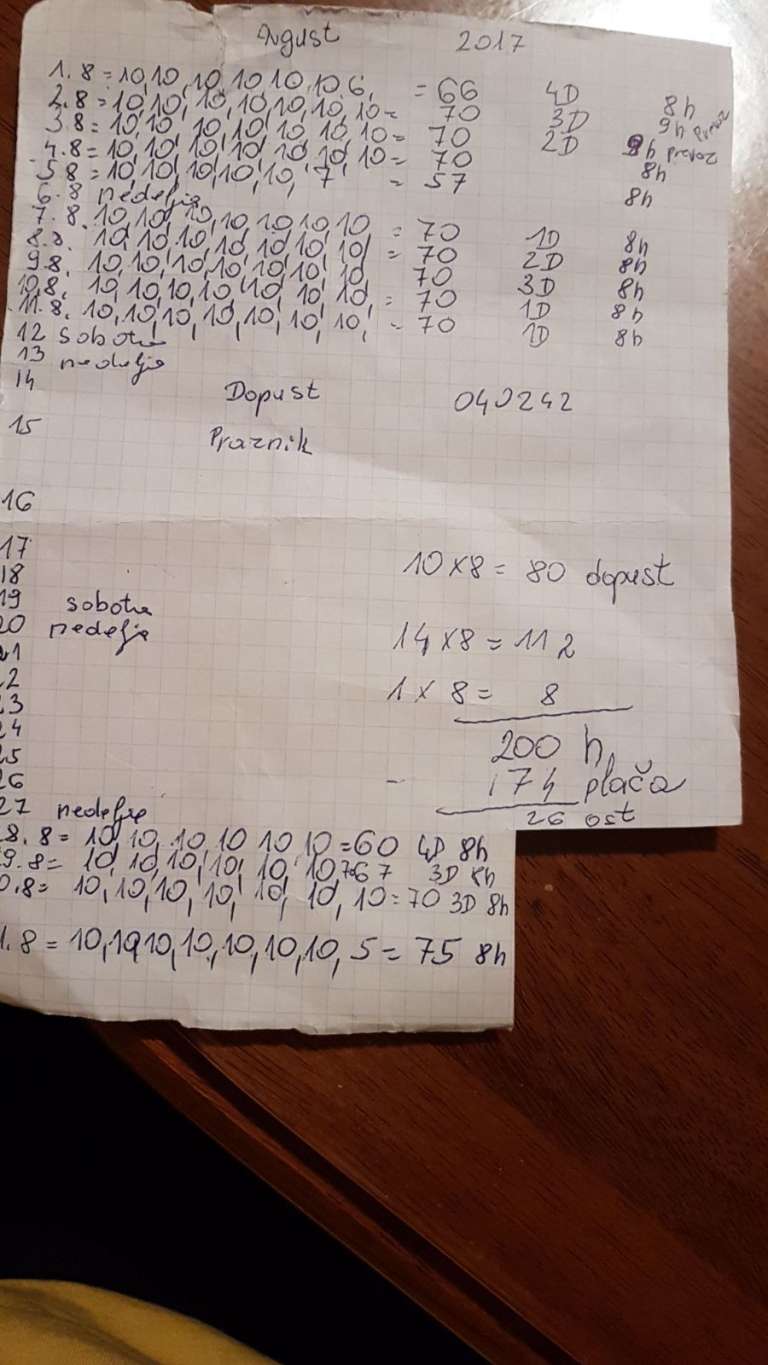 Avgust 2017
1.8 = 10,10,10,10,10,10.6, = 66 4D 8h
2.8 = 10,10,10,10,10,10,10 = 70 3D 9h prevoz
3.8 = 10,10,10,10,10,10,10 = 70 2D 9h prevoz
4.8 = 10,10,10,10,10,10,10 = 70 8h
5.8 = 10,10,10,10,10,7 = 57 8h
6.8 nedelja
7.8. 10,10,10,10,10,10,10 = 70 1D 8h
8.8. 10,10,10,10,10,10,10 = 70 2D 8h
9.8. 10,10,10,10,10,10,10 70 3D 8h
10.8. 10,10,10,10,10,10,10 = 70 1D 8h
11.8. 10,10,10,10,10,10,10, = 70 1D 8h
12 sobota
13 nedelja
14 Dopust 040242
15 Praznik
16
17
18 10x8 = 80 dopust
19 sobota
20 nedelja 14x8 = 112
21
22 1x8 = 8
23
24 200 h
25
26 - 174 plača
27 nedelja 26 ost
8.8 = 10,10,10,10,10,10 = 60 4D 8h
9.8 = 10,10,10,10,10,10 7=67 3D 8h
0.8 = 10,10,10,10,10,10,10 = 70 3D 8h
1.8 = 10,10,10,10,10,10,10,5 = 75 8h